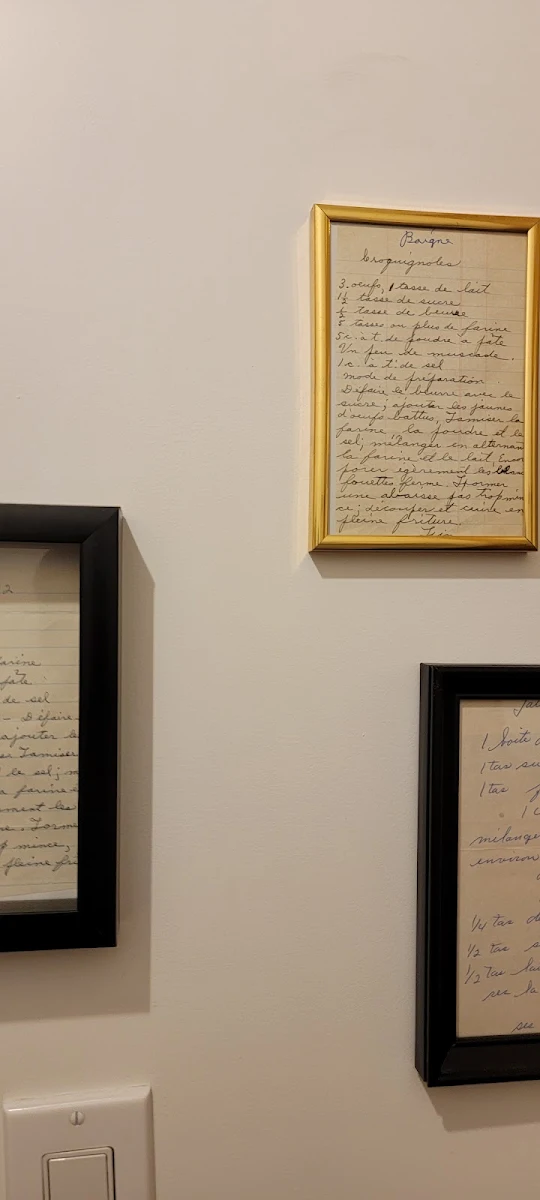 Baigne
Croquignoles
3. oeufs, 1 tasse de lait
1½ tasse de sucre
½ tasse de beurre
5 tasses ou plus de farine
5 c. à t. de poudre a pâte
Un peu de muscade.
1 c. à t. de sel
mode de préparation
Défaire le beurre avec le
sucre; ajouter les jaunes
d'oeufs battus, Tamiser la
farine la poudre et le
sel; mélanger en alternan
la farine et le lait, Encor
porer egèrement les blanc
fouettés ferme. Former
une abaisse pas trop min
ce; découper et cuire en
pleine friture.
2
farine
pate
de sel
- Défaire
ajouter le
Tamiser
le sel; m
a farine e
ement les
Forme
mince,
pleine fri
1 boite d
1 tas su
1 tas
1 c
mélange
environ
1/4 tas de
1/2 tas s
1/2 tas lai
ses la
ses